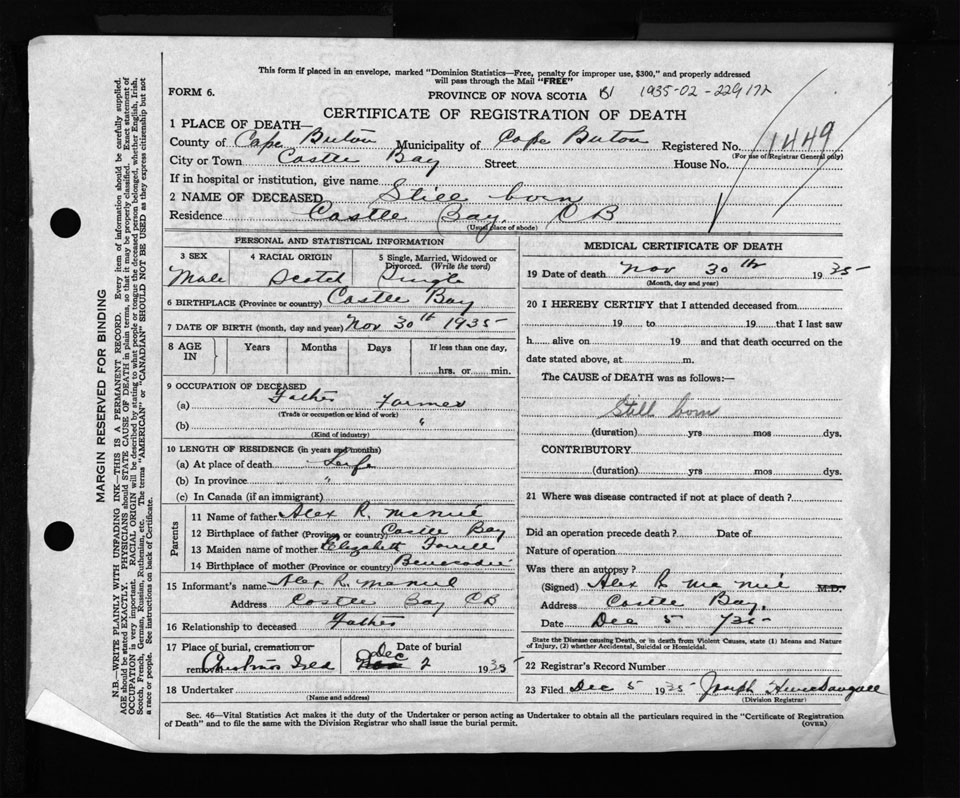 This form if placed in an envelope, marked "Dominion Statistics—Free, penalty for improper use, $300," and properly addressed
will pass through the Mail "FREE"
FORM 6.
PROVINCE OF NOVA SCOTIA 1935-02-229172
CERTIFICATE OF REGISTRATION OF DEATH
1 PLACE OF DEATH—
County of Cape Breton Municipality of Cape Breton Registered No. 1449
(For use of Registrar General only)
City or Town Castle Bay Street House No.
If in hospital or institution, give name
2 NAME OF DECEASED Still born
Residence Castle Bay, C B
(Usual place of abode)
PERSONAL AND STATISTICAL INFORMATION
3 SEX 4 RACIAL ORIGIN 5 Single, Married, Widowed or
Divorced. (Write the word)
Male Scotch Single
6 BIRTHPLACE (Province or country) Castle Bay
7 DATE OF BIRTH (month, day and year) Nov 30th 1935
8 AGE IN Years Months Days If less than one day,
hrs. or min.
9 OCCUPATION OF DECEASED
(a) Father Farmer
(Trade or occupation or kind of work)
(b) "
(Kind of industry)
10 LENGTH OF RESIDENCE (in years and months)
(a) At place of death Life
(b) In province "
(c) In Canada (if an immigrant)
Parents
11 Name of father Alex R. McNeil
12 Birthplace of father (Province or country) Castle Bay
13 Maiden name of mother Elizabeth Farrell
14 Birthplace of mother (Province or country) Benacadie
15 Informant's name Alex R. McNeil
Address Castle Bay CB
16 Relationship to deceased Father
17 Place of burial, cremation or Date of burial
removal Christmas Isld Dec 2 1935
18 Undertaker
(Name and address)
MEDICAL CERTIFICATE OF DEATH
19 Date of death Nov 30th 1935
(Month, day and year)
20 I HEREBY CERTIFY that I attended deceased from
19 to 19 that I last saw
h alive on 19 and that death occurred on the
date stated above, at m.
The CAUSE of DEATH was as follows:—
Still born
(duration) yrs mos dys.
CONTRIBUTORY
(duration) yrs mos dys.
21 Where was disease contracted if not at place of death ?
Did an operation precede death ? Date of
Nature of operation
Was there an autopsy ?
(Signed) Alex R McNeil M.D.
Address Castle Bay,
Date Dec 5 /35
State the Disease causing Death, or in death from Violent Causes, state (1) Means and Nature
of Injury, (2) whether Accidental, Suicidal or Homicidal.
22 Registrar's Record Number
23 Filed Dec 5 1935 Joseph
(Division Registrar)
Sec. 46—Vital Statistics Act makes it the duty of the Undertaker or person acting as Undertaker to obtain all the particulars required in the "Certificate of Registration
of Death" and to file the same with the Division Registrar who shall issue the burial permit. (OVER)
MARGIN RESERVED FOR BINDING
N.B.—WRITE PLAINLY WITH UNFADING INK—THIS IS A PERMANENT RECORD. Every item of information should be carefully supplied.
AGE should be stated EXACTLY. PHYSICIANS should STATE CAUSE OF DEATH in plain terms, so that it may be properly classified. Exact statement of
OCCUPATION is very important. RACIAL ORIGIN will be described by stating to what people or tongue the deceased person belonged, whether English, Irish,
Scotch, French, German, Russian, Ruthenian, etc. The terms "AMERICAN" or "CANADIAN" SHOULD NOT BE USED as they express citizenship but not
a race or people. See instructions on back of Certificate.